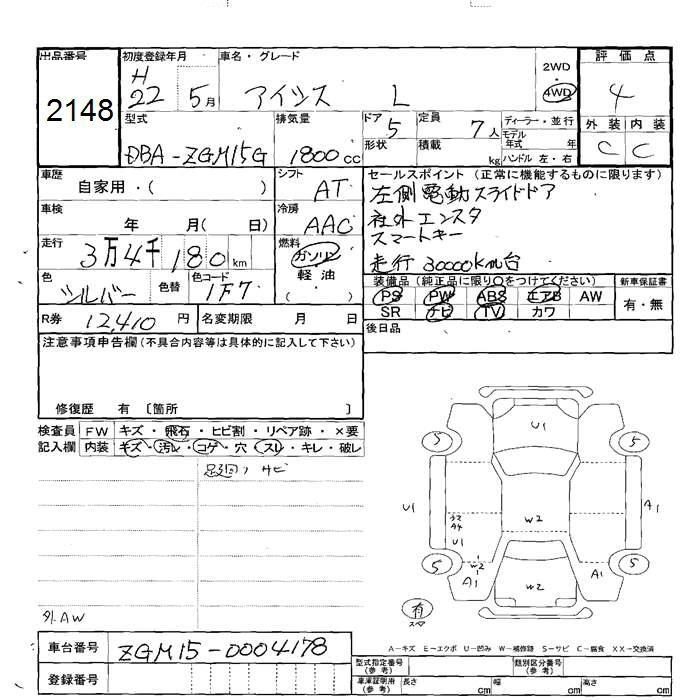 出品番号 初度登録年月 車名・グレード 2WD 評価点
2148 H 22 5月 アイシス L 4WD 4
型式 排気量 ドア 5 定員 7人 ディーラー・並行 外装 内装
DBA-ZGM15G 1800cc 形状 積載 kg モデル年式 年 C C
ハンドル 左・右
車歴 シフト セールスポイント (正常に機能するものに限ります)
自家用・( ) AT 左側電動スライドドア
車検 冷房 社外エンスタ
年 月( 日) AAC スマートキー
走行 燃料
3万4千180km ガソリン 走行30000km台
色 色替 色コード 軽油 装備品(純正品に限り○をつけてください) 新車保証書
シルバー 1F7 ( ) PS PW ABS エアB AW 有・無
R券 12,410円 名変期限 月 日 SR ナビ TV カワ
後日品
注意事項申告欄(不具合内容等は具体的に記入して下さい)
修復歴 有 〔箇所 〕
検査員 FW キズ・飛石・ヒビ割・リペア跡・×要
記入欄 内装 キズ・汚れ・コゲ・穴・スレ・キレ・破レ
足廻りサビ
U1
5 5
U1 A1
W2
U1
W2
5 5
A1 A1
W2
有
スペア
外AW
車台番号 ZGM15-0004178
A-キズ E-エクボ U-凹み W-補修跡 S-サビ C-腐食 XX-交換済
登録番号
型式指定番号(参考) 類別区分番号(参考)
車庫証明用(参考) 長さ cm 幅 cm 高さ cm